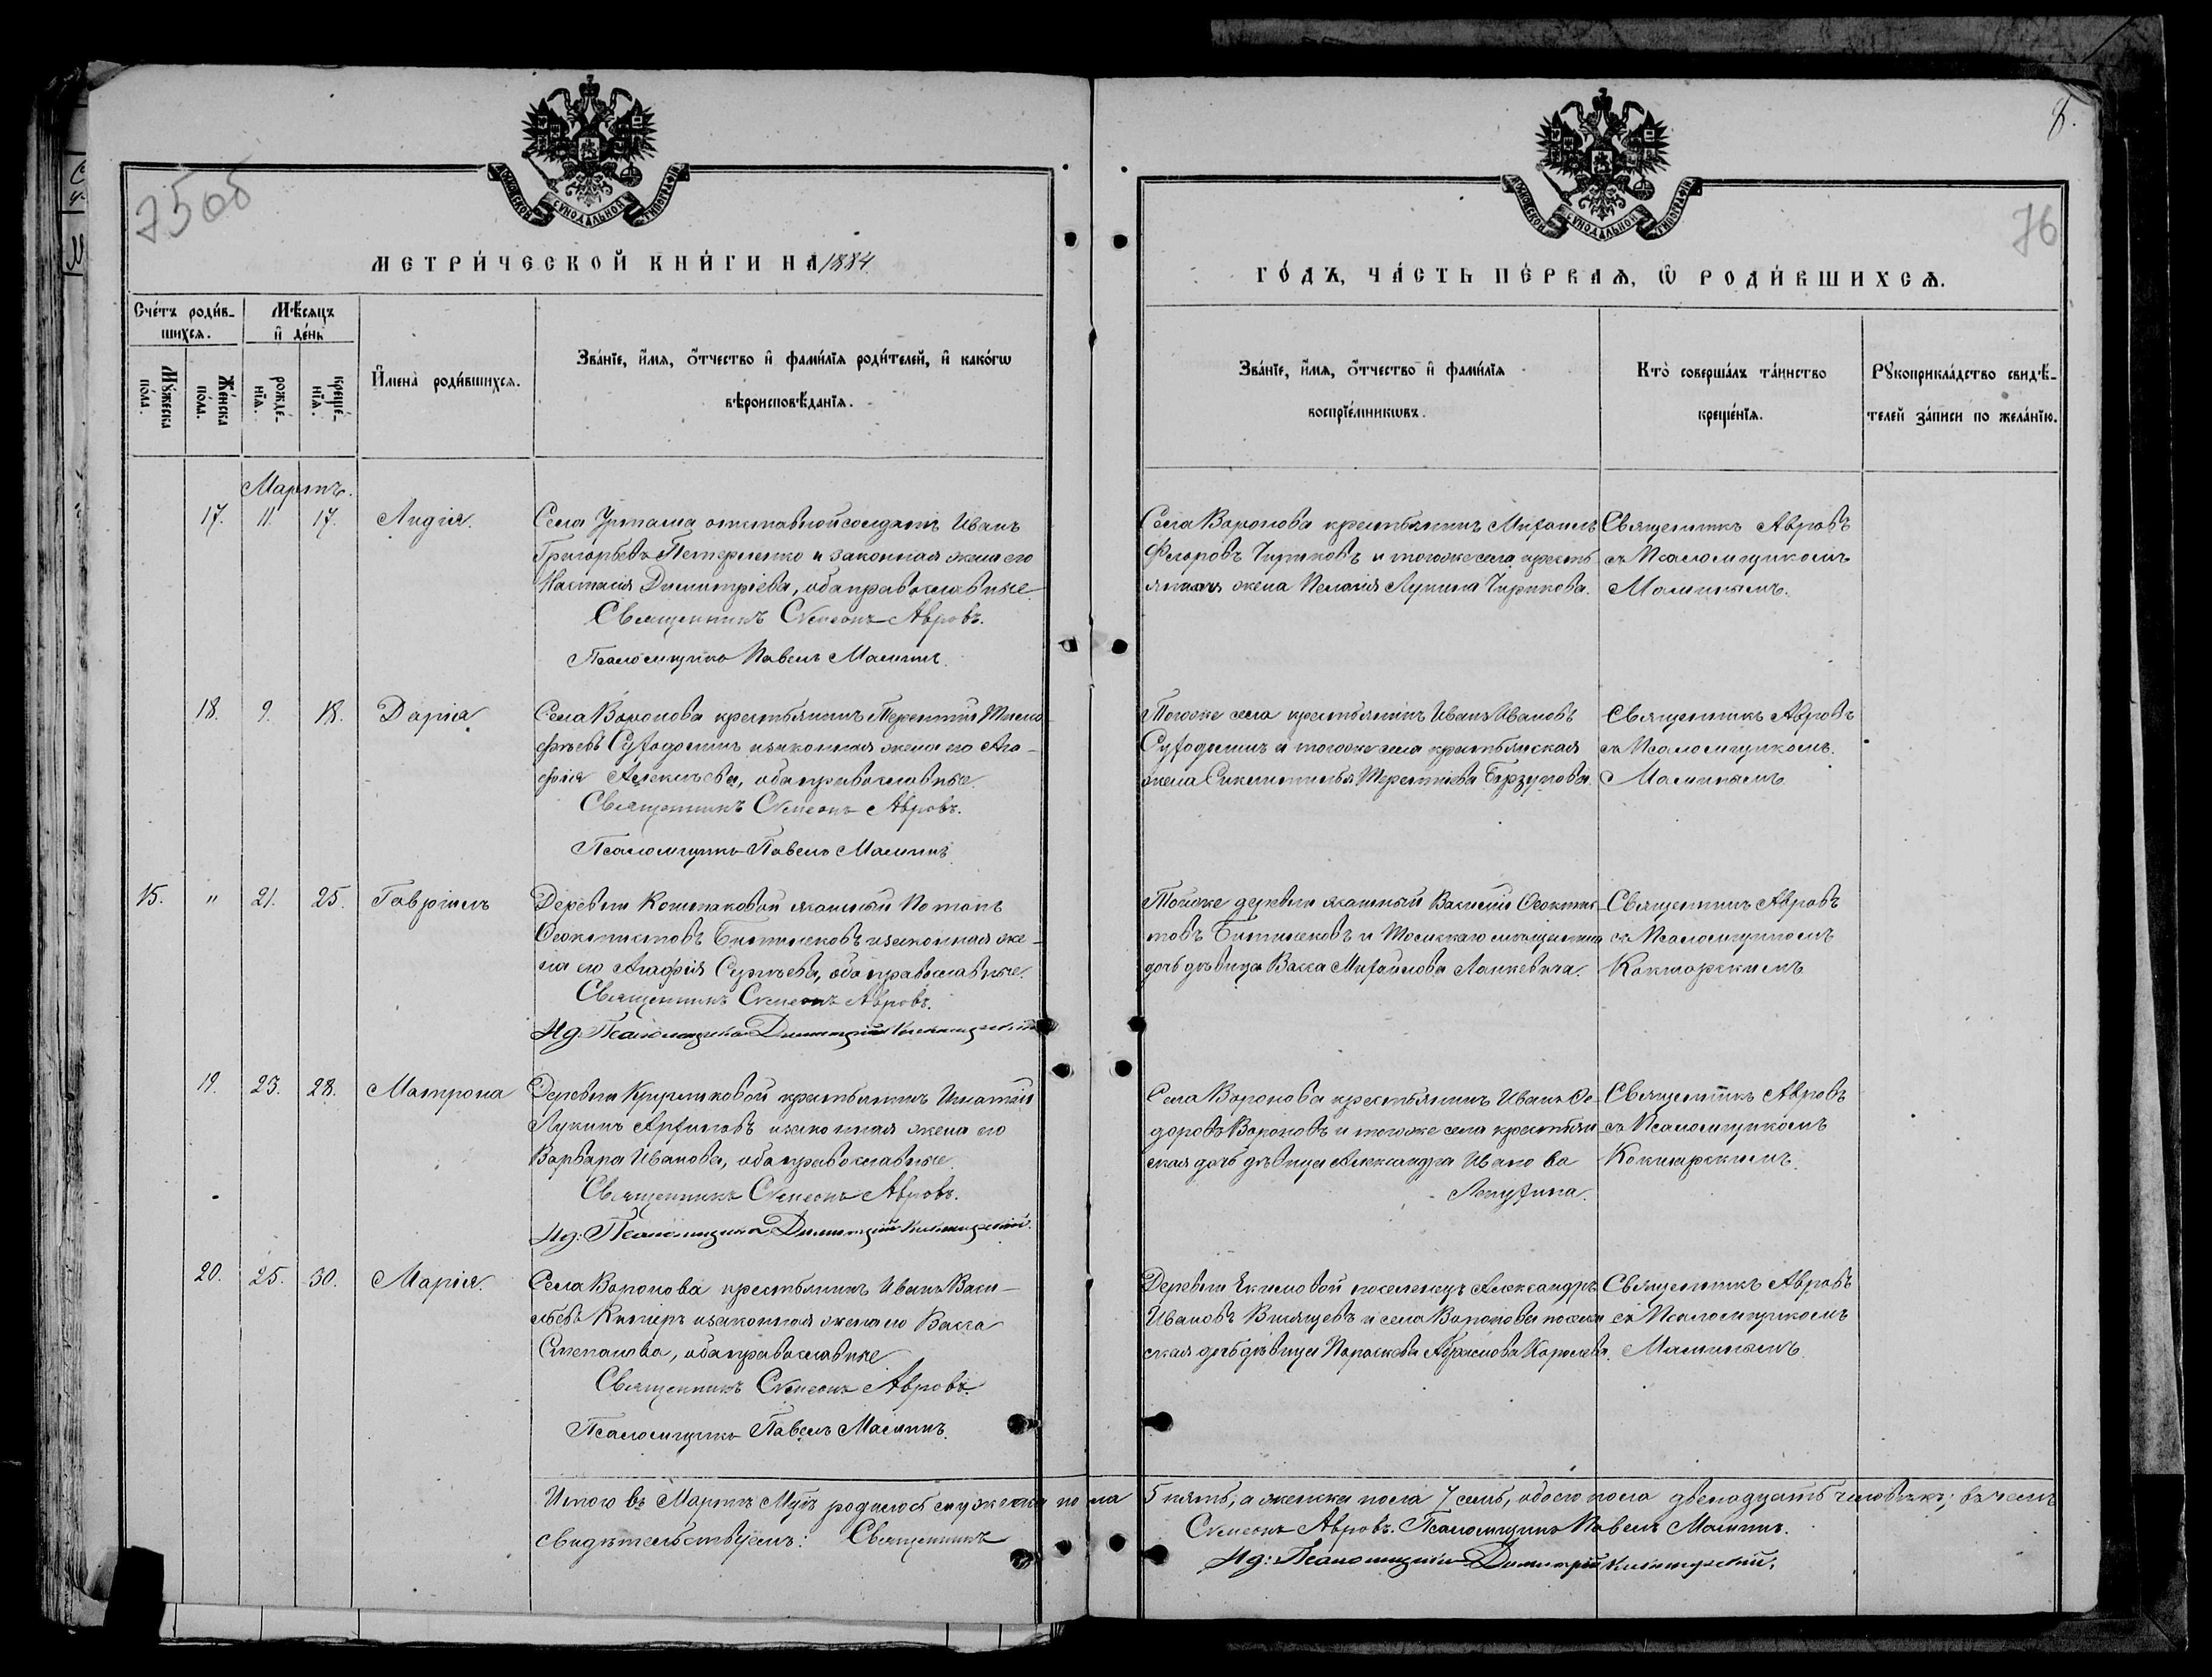 8.
7506
76
МОСКОВСКОЙ СѴНОДАЛЬНОЙ ТИПОГРАФІИ
МОСКОВСКОЙ СѴНОДАЛЬНОЙ ТИПОГРАФІИ
МЕТРИ́ЧЕСКОЙ КНИ́ГИ НА 1884
ГО́ДЪ, ЧА́СТЬ ПЕ́РВАѦ, Ѿ РОДИ́ВШИХСѦ.
Сче́тъ роди́в-
шихсѧ.
Мꙋжеска по́ла.
Же́нска по́ла.
Мѣ́сѧцъ
и҆ де́нь
рожде́-нїѧ.
креще́-нїѧ.
И҆мена̀ роди́вшихсѧ.
Зва́нїе, и҆́мѧ, ѻ҆́тчество и҆ фами́лїѧ роди́телей, и҆ како́гѡ
вѣроисповѣ́данїѧ.
Зва́нїе, и҆́мѧ, ѻ҆́тчество и҆ фами́лїѧ
воспрїе́мникѡвъ.
Кто̀ соверша́лъ та́инство
креще́нїѧ.
Рꙋкоприкла́дство свидѣ́-
телей за́писи по жела́нїю.
Мартъ.
17. 11. 17. Лидія.
Села Уртама отставной солдатъ Иванъ
Григорьевъ Петерленко и законная жена его
Настасія Димитріева, оба православные.
Священникъ Сѵмеонъ Авровъ.
Псаломщикъ Павелъ Малинъ.
Села Воронова крестьянинъ Михаилъ
Флоровъ Чириковъ и тогоже села кресть
янина жена Пелагія Лукина Чирикова.
Священникъ Авровъ
съ Псаломщикомъ
Малинымъ.
18. 9. 18. Дарія
Села Воронова крестьянинъ Терентій Тимо-
фѣевъ Суходолинъ и законная жена его Ага-
фія Алексѣева, оба православные.
Священникъ Сѵмеонъ Авровъ.
Псаломщикъ Павелъ Малинъ
Тогоже села крестьянинъ Иванъ Ивановъ
Суходолинъ и тогоже села крестьянская
жена Терентіева Барзунова.
Священникъ Авровъ
съ Псаломщикомъ
Малинымъ
15. " 21. 25. Гавріилъ
Деревни Кошпаковой Потапъ
Ѳеоктистовъ и законная же-
на его Агафія Сергѣева, оба православные.
Священникъ Сѵмеонъ Авровъ.
Ид. Псаломщика Димитрій
Тойже деревни Василій Ѳеоктис-
товъ и Томскаго мѣщанина
дочь дѣвица Васса Михайлова
Священникъ Авровъ
съ Псаломщикомъ
19. 23. 28. Матрона
Деревни Кругликовой крестьянинъ Игнатій
Лукинъ Архиповъ и законная жена его
Варвара Иванова, оба православные.
Священникъ Сѵмеонъ Авровъ.
Ид: Псаломщика Димитрій
Села Воронова крестьянинъ Иванъ Ѳе-
доровъ Вороновъ и тогоже села крестьян
ская дочь дѣвица Александра Ивано ва
Лопухина.
Священникъ Авровъ
съ Псаломщикомъ
20. 25. 30. Марія.
Села Воронова крестьянинъ Иванъ Васи-
льевъ и законная жена его Васса
Степанова, оба православные
Священникъ Сѵмеонъ Авровъ.
Псаломщикъ Павелъ Малинъ.
Деревни Екимовой поселенецъ Александръ
Ивановъ и села Воронова поселен
ская дочь дѣвица Параскева Абрамова Королева.
Священникъ Авровъ
съ Псаломщикомъ
Малинымъ
Итого въ Мартѣ М-цѣ родилось мужеска по ла 5 пять, а женска пола 7 семь, обоего пола двенадцать человѣкъ; въ чемъ
свидѣтельствуемъ: Священникъ Сѵмеонъ Авровъ. Псаломщикъ Павелъ Малинъ.
Ид: Псаломщика Димитрій